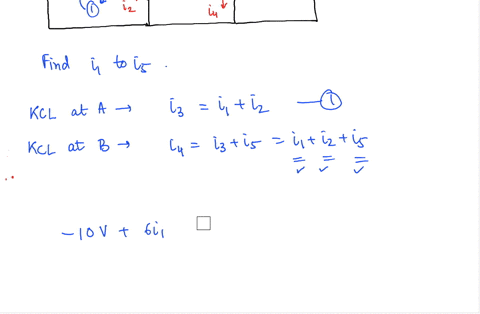 ① i₂ i₄ ↓
Find i₁ to i₅ .
KCL at A → i₃ = i₁ + i₂ — ①
KCL at B → i₄ = i₃ + i₅ = i₁ + i₂ + i₅
✓ ✓ ✓
-10V + 6i₁